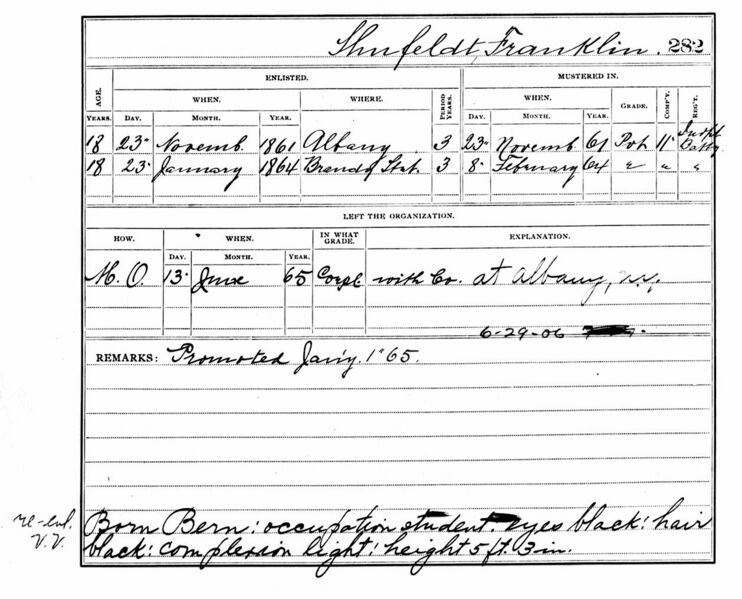 Shufeldt, Franklin. 282
ENLISTED. MUSTERED IN.
AGE. WHEN. WHERE. PERIOD YEARS. WHEN. GRADE. COMP'Y. REG'T.
YEARS. DAY. MONTH. YEAR. DAY. MONTH. YEAR.
18 23" Novemb. 1861 Albany 3 23" Novemb 61 Pvt 11" Indpt Batty
18 23" January 1864 Brandy Stat. 3 8" February 64 " " "
LEFT THE ORGANIZATION.
HOW. WHEN. IN WHAT GRADE. EXPLANATION.
DAY. MONTH. YEAR.
M. O. 13" June 65 Corpl with Co. at Albany, N.Y.
6-29-06
REMARKS: Promoted Jan'y. 1" 65.
re-enl. Born Bern: occupation student. eyes black: hair
V.V. black: complexion light: height 5 ft. 3 in.